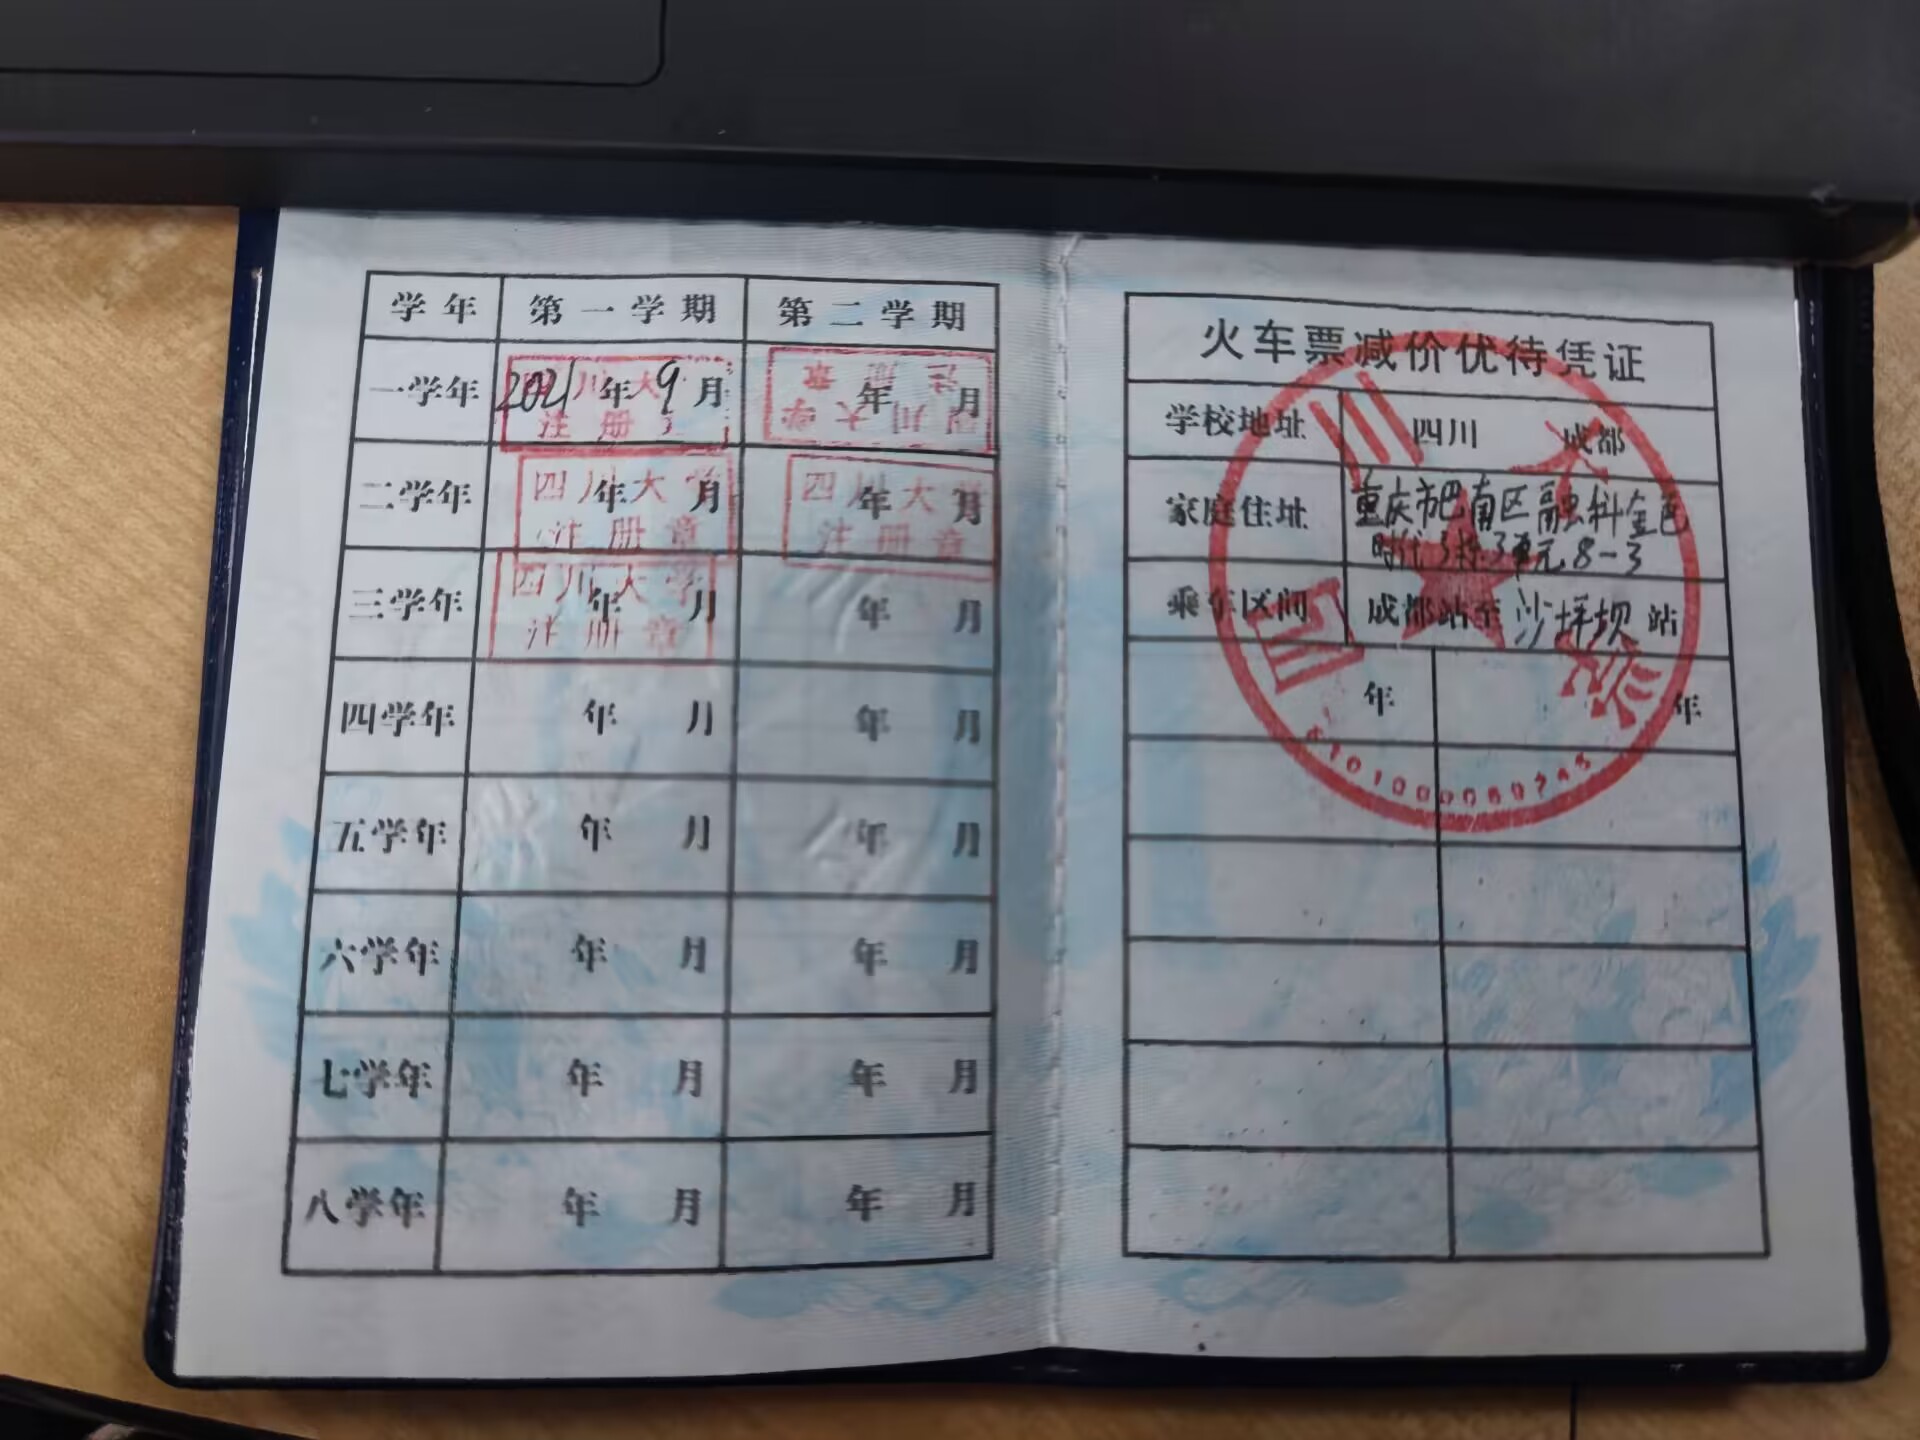 学年 第一学期 第二学期
一学年 2021年9月 年 月
四川大
注册
四川大学
注册章
二学年 年 月 年 月
四川大学
注册章
四川大学
注册章
三学年 年 月 年 月
四川大学
注册章
四学年 年 月 年 月
五学年 年 月 年 月
六学年 年 月 年 月
七学年 年 月 年 月
八学年 年 月 年 月
火车票减价优待凭证
学校地址 四川 成都
家庭住址 重庆市巴南区融科金色
时代3栋3单元8-3
乘车区间 成都站至沙坪坝站
年 年
四川大学